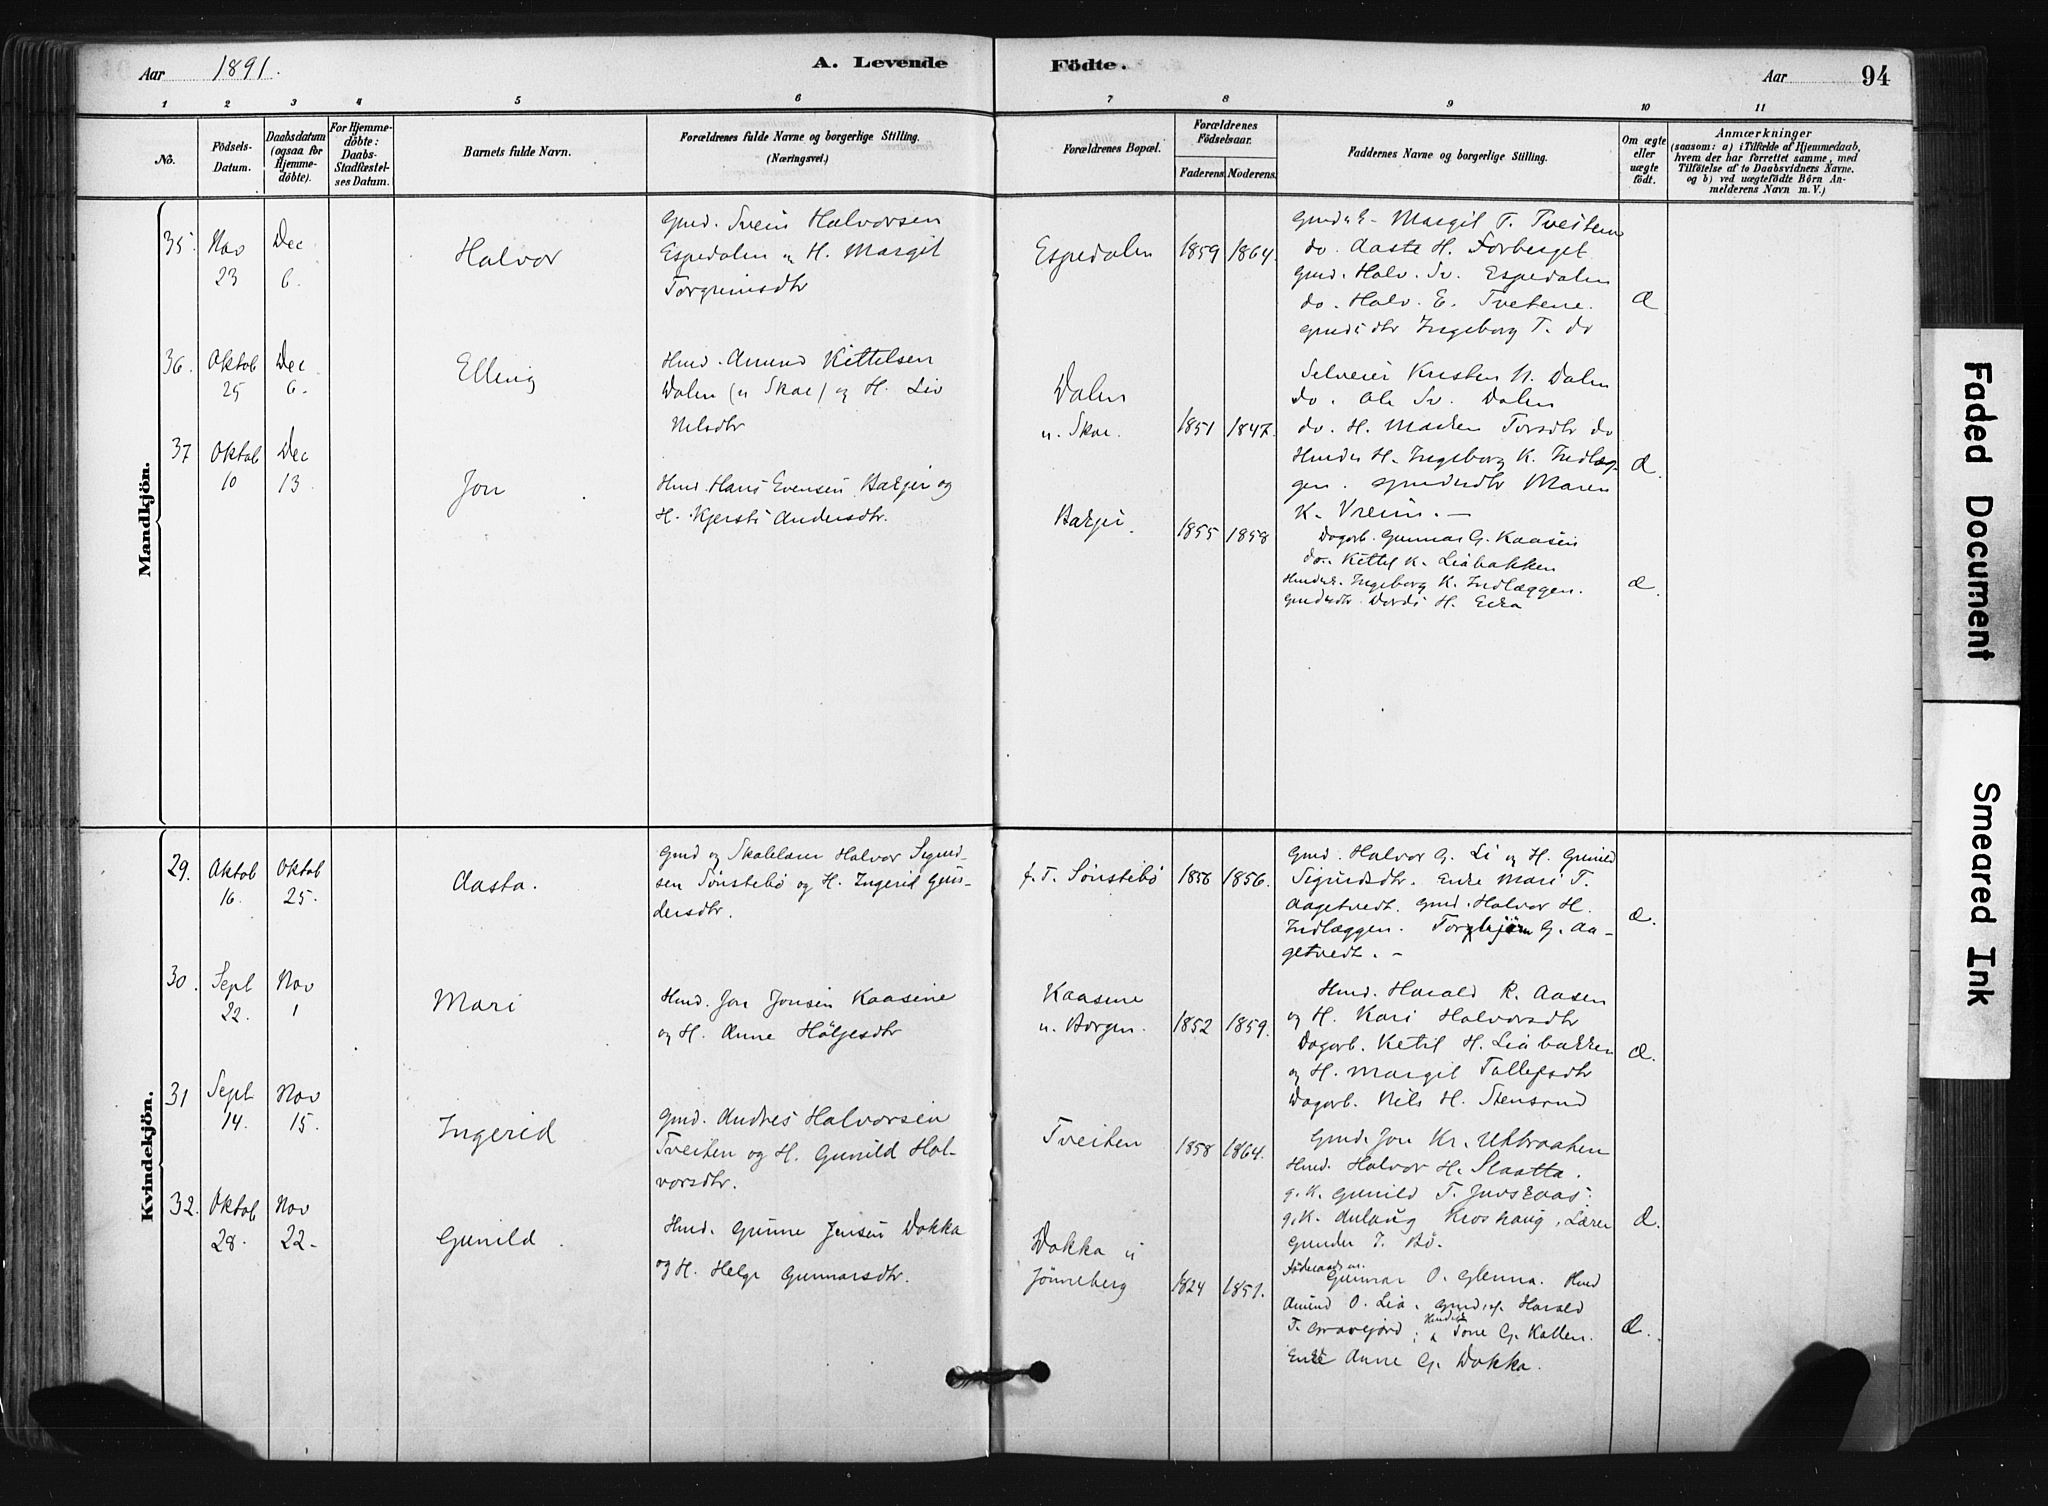 Aar 1891.
A. Levende Födte.
Aar 94
1 2 3 4 5 6 7 8 9 10 11
No.
Födsels-Datum.
Daabsdatum (ogsaa for Hjemmedöbte).
For Hjemmedöbte: Daabs-Stadfæstelses Datum.
Barnets fulde Navn.
Forældrenes fulde Navne og borgerlige Stilling. (Næringsvei.)
Forældrenes Bopæl.
Forældrenes Födselsaar.
Faderens. Moderens.
Faddernes Navne og borgerlige Stilling.
Om ægte eller uægte födt.
Anmærkninger
(saasom: a) i Tilfælde af Hjemmedaab,
hvem der har forrettet samme, med
Tilföielse af to Daabsvidners Navne.
og b) ved uægtefödte Börn An-
melderens Navn m. V.)
Mandkjön.
35. Nov 23 Dec 6. Halvor
Gmd. Svein Halvorsen
Espedalen og H. Margit
Torgrimsdtr
Espedalen 1859 1864.
Gmds E. Margit T. Tveitene
do. Aaste H. Forberget
Gmd. Halv. Sv. Espedalen
do. Halv. E. Tvetene.
Gmds dtr Ingeborg T. do
Æ
36. Oktob 25 Dec 6. Elling
Hmd. Amund Kittelsen
Dalen (u Skoe) og H. Liv
Nilsdtr
Dalen
u. Skoe. 1851 1847.
Selveier Kristen N. Dalen
do. Ole Sv. Dalen
do. H. Maren Torsdtr do
Hmds H. Ingeborg K. Indlæg-
gen. Gmdsdtr Maren
K. Vreim. —
Æ.
37 Oktob 10 Dec 13. Jon
Hmd. Hans Evensen Bakjer og
H. Kjersti Andersdtr.
Bakjer. 1855 1858
Dagarb. Gunnar G. Kaasen
do. Kittel K. Liabakken
Hmdsk. Ingeborg K. Indlæggen.
Gmdsdtr. Dordi H. Eika
Æ.
Kvindekjön.
29. Oktob 16. Oktob 25. Aasta.
Gmd og Skolelærer Halvor Sigurd-
sen Sönstebö og H. Ingerid Gun-
dersdtr.
f. T. Sönstebö 1856 1856.
Gmd. Halvor G. Li og H. Gunild
Sigurdsdtr. Enke Mari T.
Aagetvedt. Gmd. Halvor H.
Indlæggen. Torbjörn G. Aa-
getvedt. —
Æ.
30. Sept 22. Nov 1 Mari
Hmd. Jon Jonsen Kaasene
og H. Anne Höljesdtr
Kaasene
u. Borgen. 1852 1859.
Hmd. Harald R. Aasen
og H. Kari Halvorsdtr
Dagarb. Ketil H. Liabakken
og H. Margit Tollefsdtr
Dagarb. Nils H. Stensrud
Æ.
31 Sept 14. Nov 15. Ingerid
Gmd. Andres Halvorsen
Tveiten og H. Gunild Hal-
vorsdtr.
Tveiten 1858 1864.
Gmd. Jon Kr. Utbraaten
Hmd. Halvor H. Slaatta.
g. K. Gunild T. Juvskaas.
g. K. Aulaug Kroshaug, Lærer
Gunder J. Bö.
Æ.
32. Oktob 28. Nov 22. Gunild.
Hmd. Gunne Jensen Dokka
og H. Helge Gunnarsdtr.
Dokka u
Jönneberg 1824 1851.
Föderaadsm.
Gunnar O. Glenna. Hmd
Amund O. Lia. Gmd. Harald
T. Gravejord; Tone G. Kolten.
Enke Anne G. Dokka.
Æ.
Faded Document
Smeared Ink